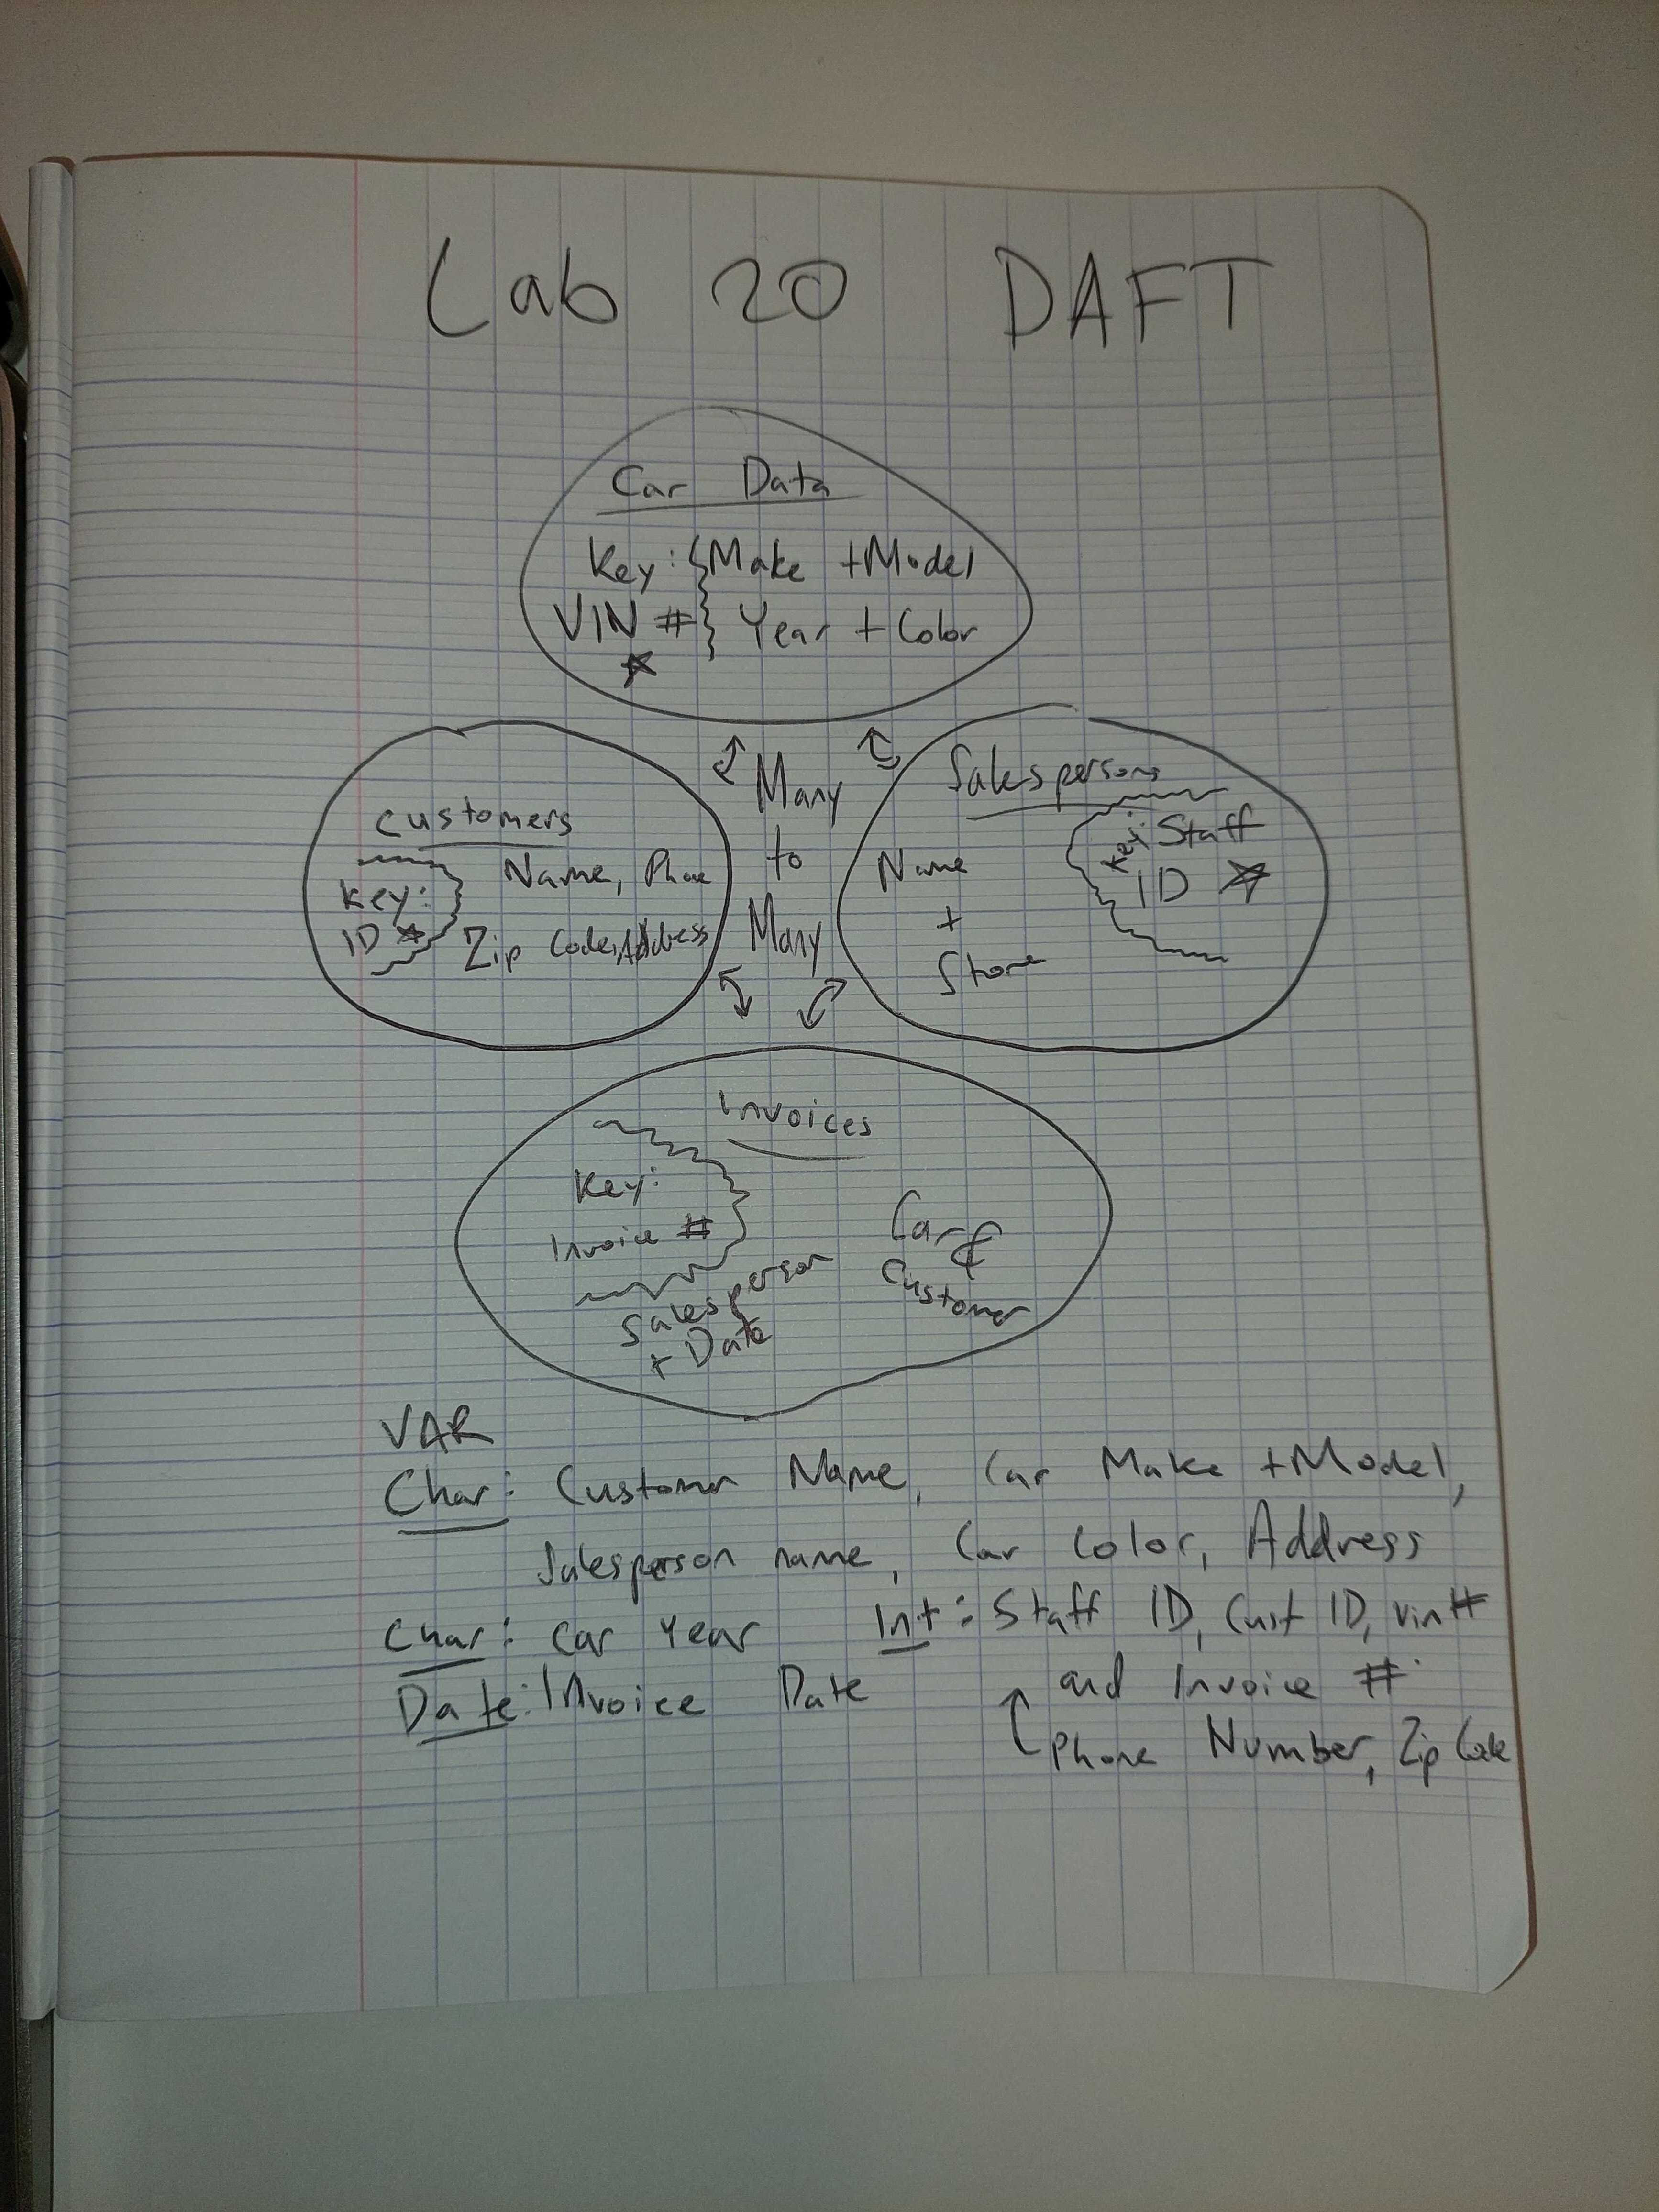 Lab 20 DAFT
Car Data
Key: Make + Model
VIN # Year + Color
Many
to
Many
Customers
Key:
ID
Name, Phone
Zip Code, Address
Salespersons
Name
+
Store
Key: Staff
ID
Invoices
Key:
Invoice #
Salesperson
+ Date
Car &
Customer
VAR
Char: Customer Name, Car Make + Model,
Salesperson name, Car Color, Address
Char: Car Year Int: Staff ID, Cust ID, Vin #
Date: Invoice Date and Invoice #
Phone Number, Zip Code